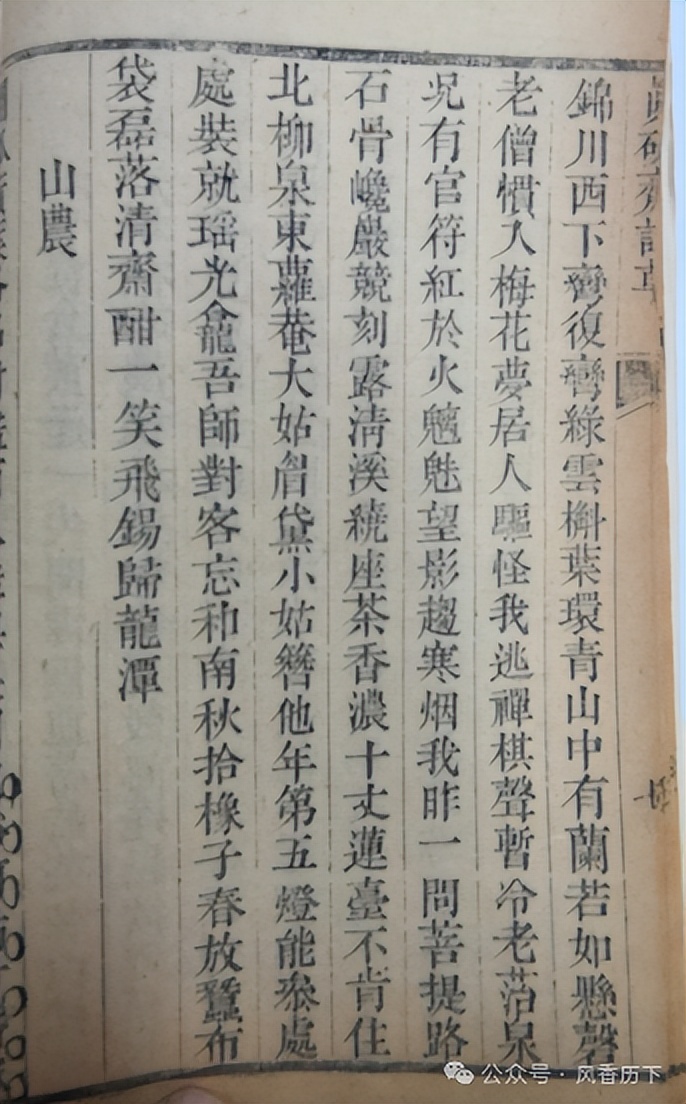 錦川西下彎復彎綠雲槲葉環青山中有蘭若如懸磬
老僧慣入梅花夢居人驅怪我逃禪棋聲暫冷老菭泉
呪有官符紅於火魑魅望影趨寒烟我昨一問菩提路
石骨巉巖競刻露清溪繞座茶香濃十丈蓮臺不肯住
北柳泉東蘿菴大姑眉黛小姑簪他年第五燈能叅處
處裝就瑶光龕吾師對客忘和南秋拾橡子春放蠶布
袋磊落清齋酣一笑飛錫歸龍潭
山農
公众号·风香历下